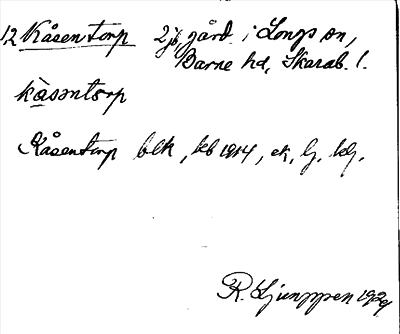 12 Kåsentorp 2 gård i Longs sn,
Barne hd, Skarab. l.
kåsəntorp
Kåsentorp blk, kb 1914, ek, lj.
R. Ljunggren 1929